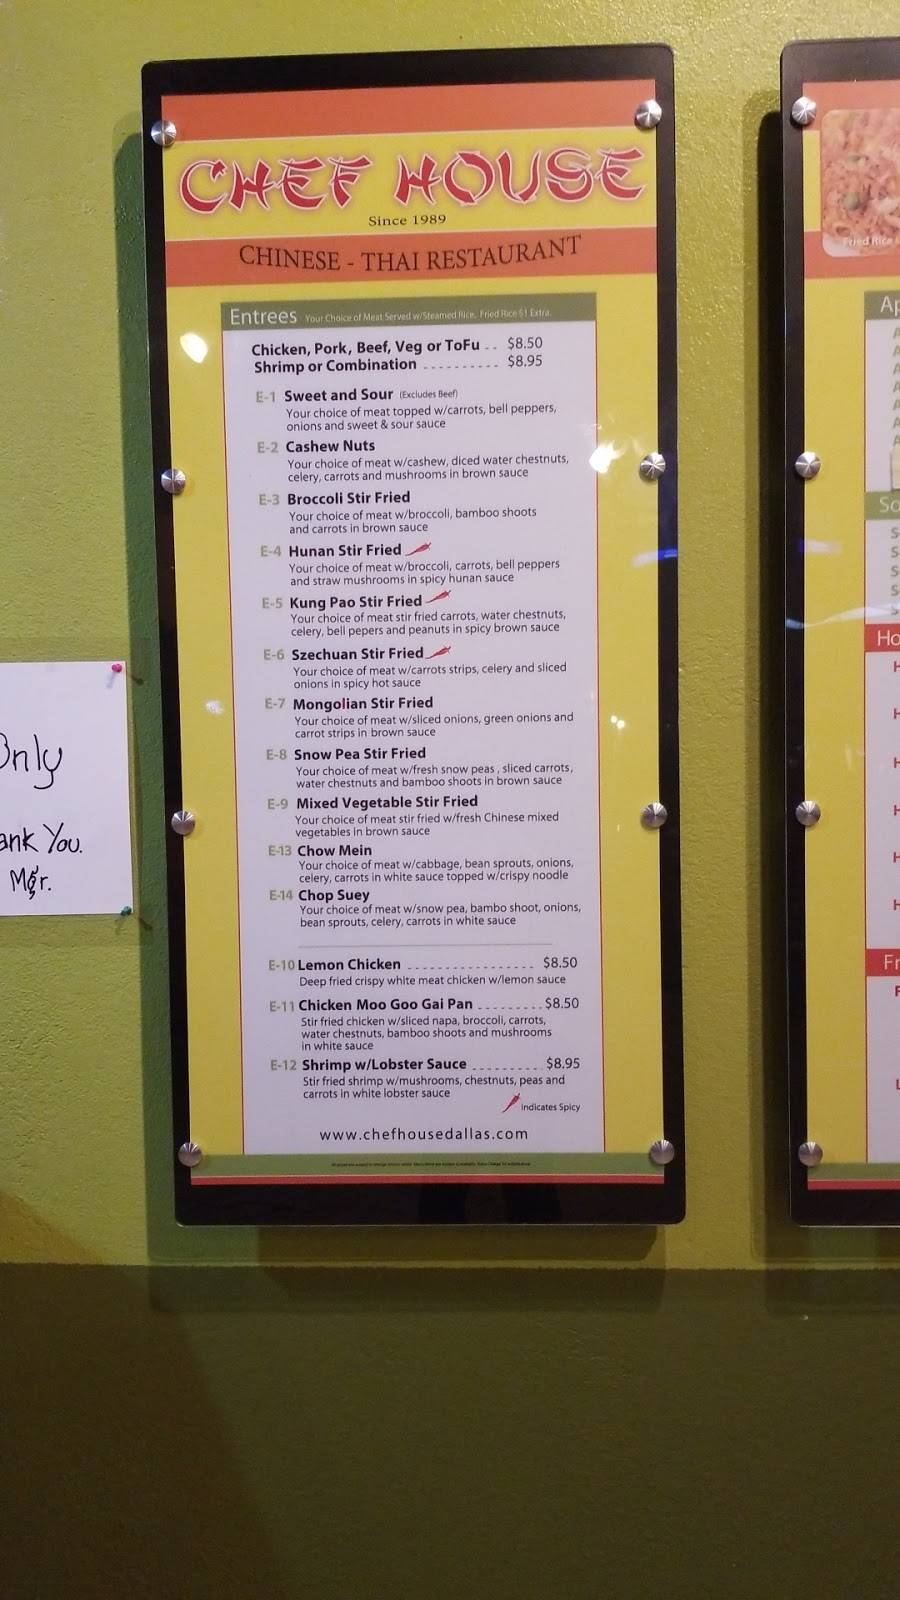 CHEF HOUSE
Since 1989
CHINESE - THAI RESTAURANT
Entrees Your Choice of Meat Served w/Steamed Rice. Fried Rice $1 Extra.
Chicken, Pork, Beef, Veg or ToFu .. $8.50
Shrimp or Combination .......... $8.95
E-1 Sweet and Sour (Excludes Beef)
Your choice of meat topped w/carrots, bell peppers,
onions and sweet & sour sauce
E-2 Cashew Nuts
Your choice of meat w/cashew, diced water chestnuts,
celery, carrots and mushrooms in brown sauce
E-3 Broccoli Stir Fried
Your choice of meat w/broccoli, bamboo shoots
and carrots in brown sauce
E-4 Hunan Stir Fried
Your choice of meat w/broccoli, carrots, bell peppers
and straw mushrooms in spicy hunan sauce
E-5 Kung Pao Stir Fried
Your choice of meat stir fried carrots, water chestnuts,
celery, bell pepers and peanuts in spicy brown sauce
E-6 Szechuan Stir Fried
Your choice of meat w/carrots strips, celery and sliced
onions in spicy hot sauce
E-7 Mongolian Stir Fried
Your choice of meat w/sliced onions, green onions and
carrot strips in brown sauce
E-8 Snow Pea Stir Fried
Your choice of meat w/fresh snow peas , sliced carrots,
water chestnuts and bamboo shoots in brown sauce
E-9 Mixed Vegetable Stir Fried
Your choice of meat stir fried w/fresh Chinese mixed
vegetables in brown sauce
E-13 Chow Mein
Your choice of meat w/cabbage, bean sprouts, onions,
celery, carrots in white sauce topped w/crispy noodle
E-14 Chop Suey
Your choice of meat w/snow pea, bambo shoot, onions,
bean sprouts, celery, carrots in white sauce
E-10 Lemon Chicken ................. $8.50
Deep fried crispy white meat chicken w/lemon sauce
E-11 Chicken Moo Goo Gai Pan ......... $8.50
Stir fried chicken w/sliced napa, broccoli, carrots,
water chestnuts, bamboo shoots and mushrooms
in white sauce
E-12 Shrimp w/Lobster Sauce .......... $8.95
Stir fried shrimp w/mushrooms, chestnuts, peas and
carrots in white lobster sauce
Indicates Spicy
www.chefhousedallas.com
Only
ank You.
Mgr.
Fried Rice
Ap
So
Ho
Fr